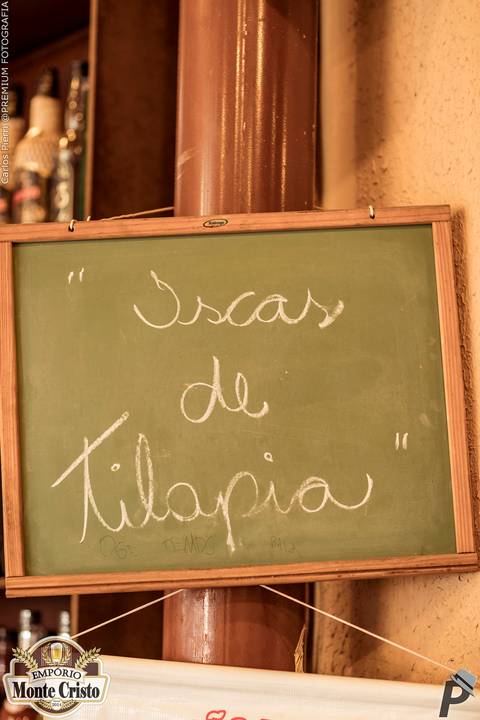 Carlos Pierri @PREMIUM FOTOGRAFIA
" Iscas
de
Tilapia "
EMPÓRIO
Monte Cristo
P